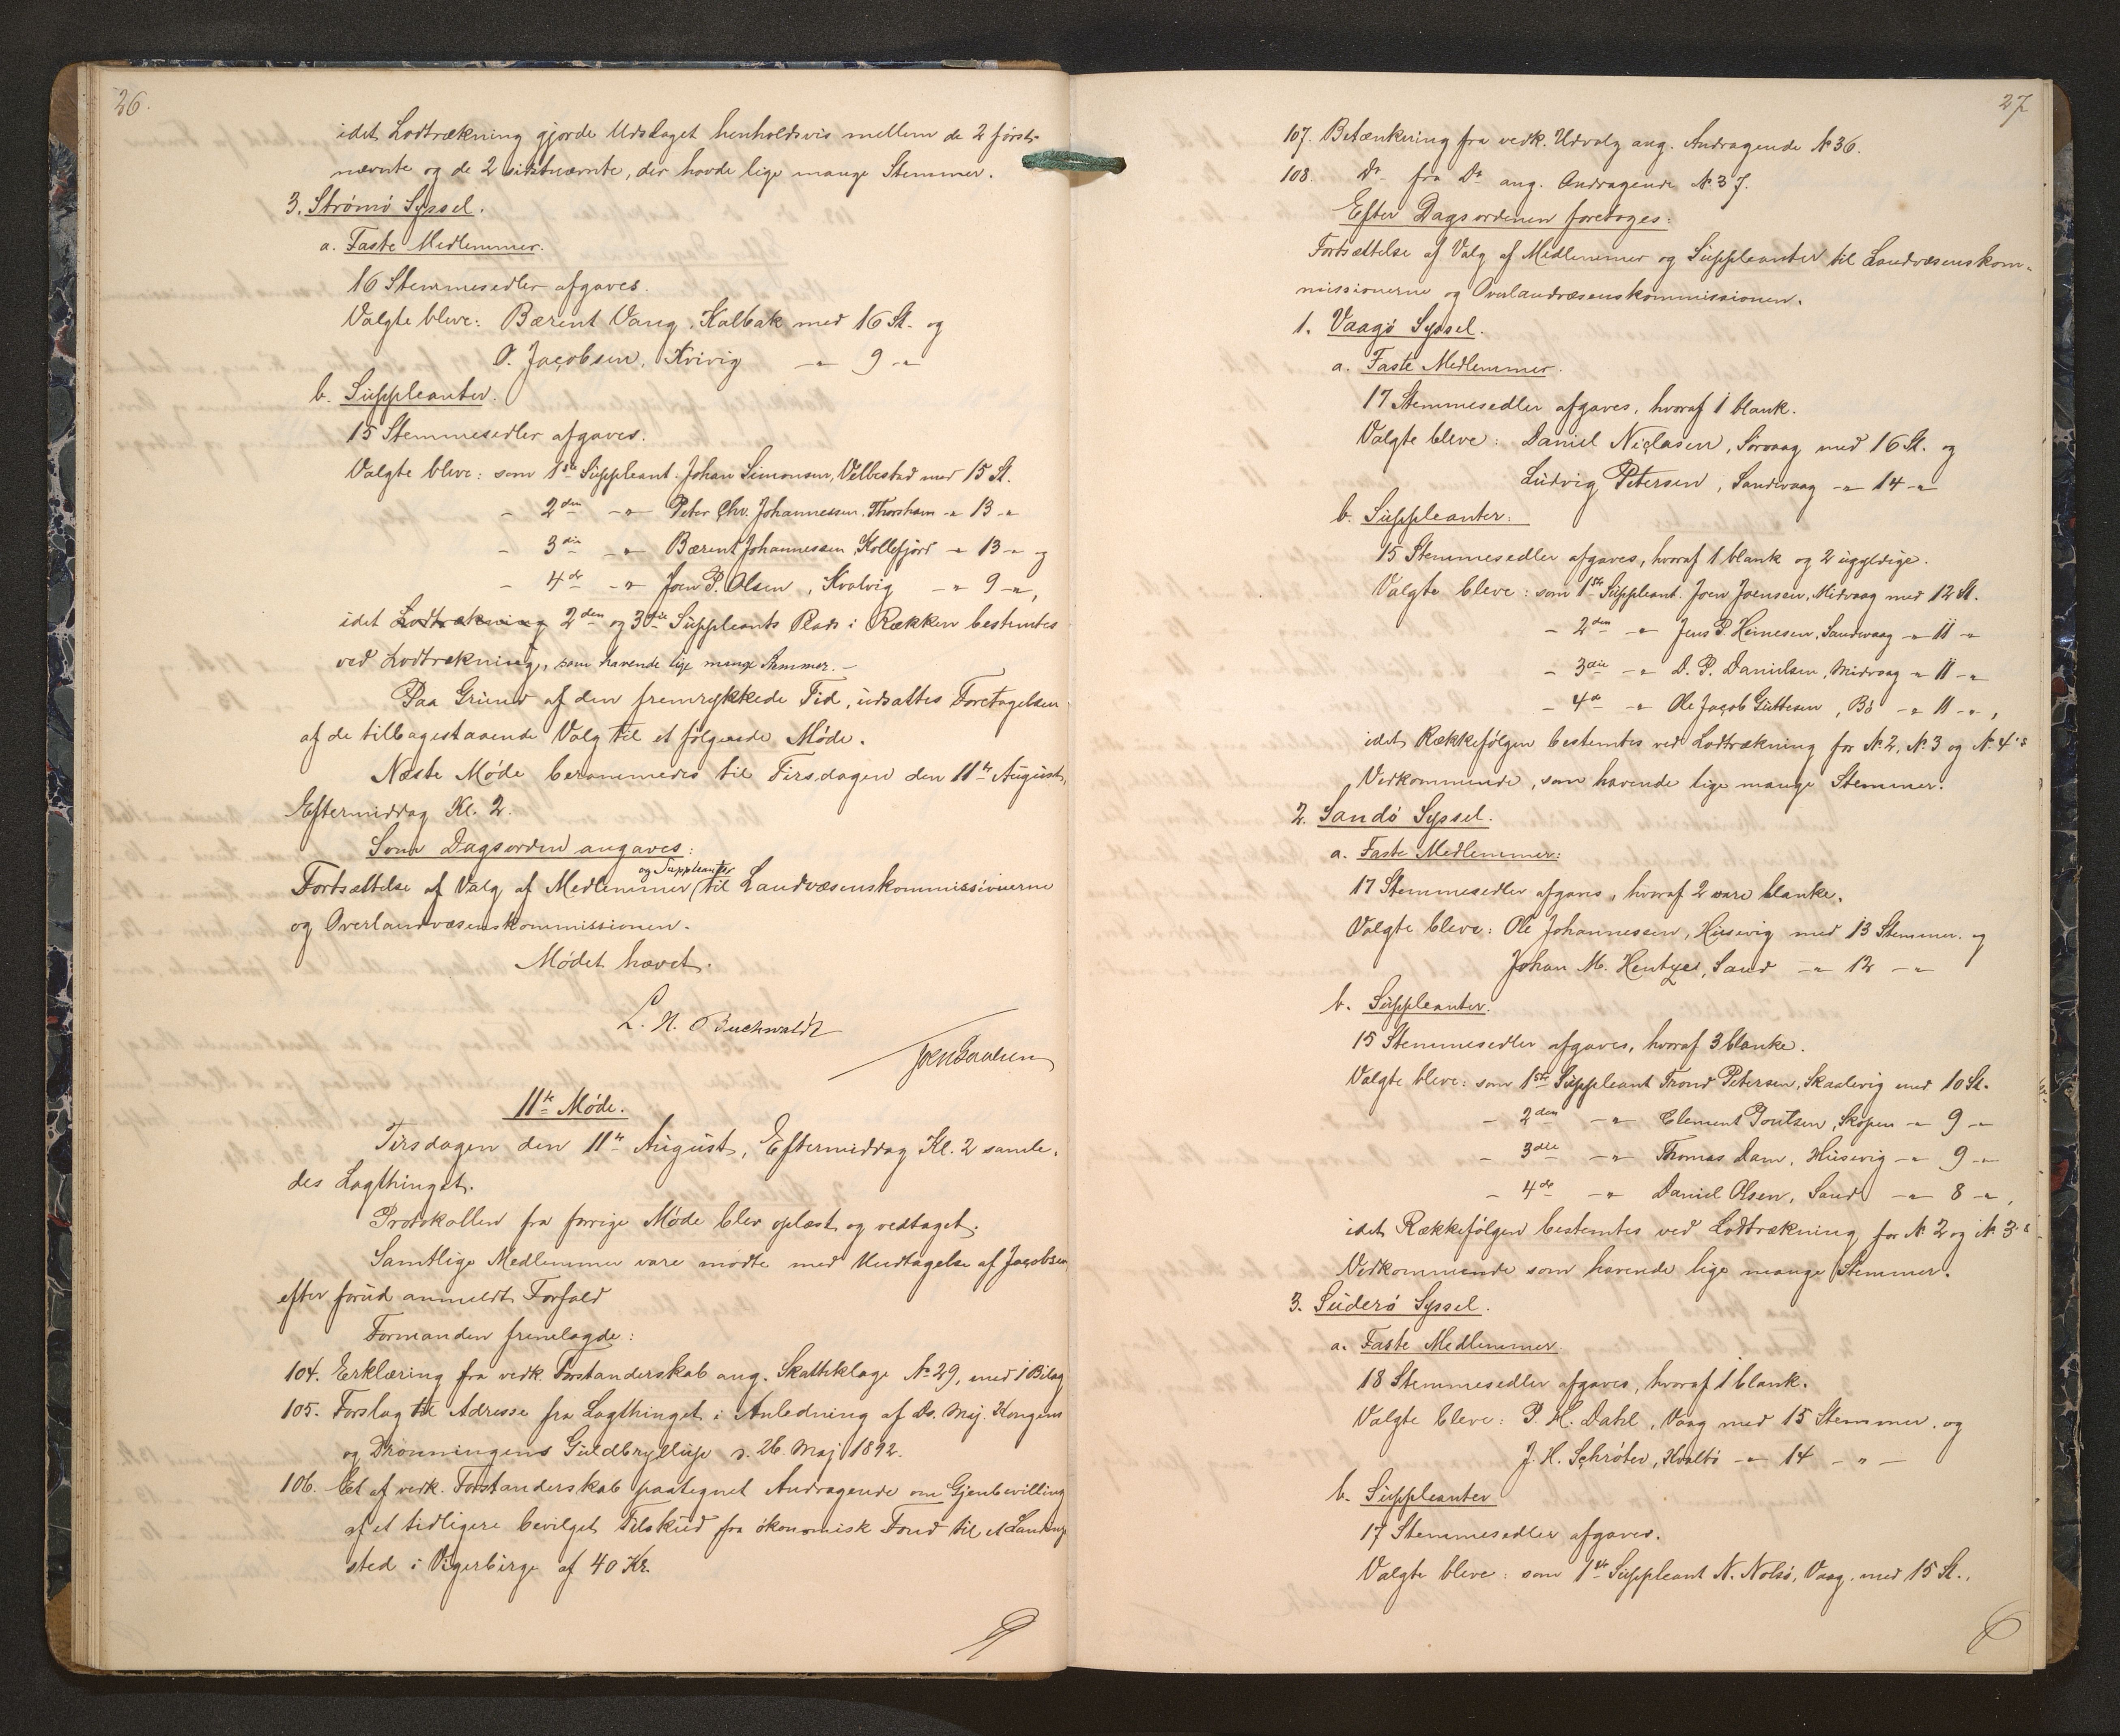 26.
idet Lodtrækning gjorde Udslaget henholdsvis mellem de 2 først-
nævnte og de 2 sidstnævnte, der havde lige mange Stemmer.
3. Strømø Syssel.
a. Faste Medlemmer.
16 Stemmesedler afgaves.
Valgte bleve: Bærent Vang, Kalbak med 16 St. og
O. Jacobsen, Kvivig -"- 9 -"-
b. Suppleanter.
15 Stemmesedler afgaves.
Valgte bleve: som 1ste Suppleant: Johan Simonsen, Velbestad med 15 St.
- 2den -"- Peter Chr. Johannessen, Thorshavn -"- 13 -"-
- 3die -"- Bærent Johannessen, Kollefjord -"- 13 -"- og
- 4de -"- Joen P. Olsen, Kvalvig -"- 9 -"-,
idet Lodtrækning 2den og 3die Suppleants Plads i Rækken bestemtes
ved Lodtrækning, som havende lige mange Stemmer. -
Paa Grund af den fremrykkede Tid, udsattes Foretagelsen
af de tilbagestaaende Valg til et følgende Møde.
Næste Møde berammedes til Tirsdagen den 11te August,
Eftermiddag Kl. 2.
Som Dagsorden angaves:
og Suppleanter
Fortsættelse af Valg af Medlemmer til Landvæsenskommissionerne
og Overlandvæsenskommissionen.
Mødet hævet.
L. N. Buchwaldt
Joen Poulsen
11te Møde.
Tirsdagen den 11te August, Eftermiddag Kl. 2 samle-
des Lagthinget.
Protokollen fra forrige Møde blev oplæst og vedtaget.
Samtlige Medlemmer vare mødte med Undtagelse af Jacobsen
efter forud anmeldt Forfald
Formanden fremlagde:
104. Erklæring fra vedk. Forstanderskab ang. Skatteklage No 29, med 1 Bilag
105. Forslag til Adresse fra Lagthinget i Anledning af Ds. Maj. Kongens
og Dronningens Guldbryllup d. 26. Maj 1892.
106. Et af vedk. Forstanderskab paategnet Andragende om Gjenbevilling
af et tidligere bevilget Tilskud fra økonomisk Fond til et Landings
sted i Vigerbirge af 40 Kr.
27
107. Betænkning fra vedk. Udvalg ang. Andragende No 36.
108. Do fra Do ang. Andragende No 37.
Efter Dagsordenen foretoges:
Fortsættelse af Valg af Medlemmer og Suppleanter til Landvæsenskom-
missionerne og Overlandvæsenskommissionen.
1. Vaagø Syssel.
a. Faste Medlemmer.
17 Stemmesedler afgaves, hvoraf 1 blank.
Valgte bleve: Daniel Niclasen, Sørvaag med 16 St. og
Ludvig Petersen, Sandevaag -"- 14 -"-
b. Suppleanter:
15 Stemmesedler afgaves, hvoraf 1 blank og 2 ugyldige.
Valgte bleve: som 1ste Suppleant. Joen Joensen, Midvaag med 12 St.
- 2den -"- Jens P. Heinesen, Sandevaag -"- 11 -"-
- 3die -"- D. P. Danielsen, Midvaag -"- 11 -"-
- 4de -"- Ole Jacob Guttesen, Bø -"- 11 -"-,
idet Rækkefølgen bestemtes ved Lodtrækning for No 2, No 3 og No 4's
Vedkommende, som havende lige mange Stemmer.
2. Sandø Syssel.
a. Faste Medlemmer:
17 Stemmesedler afgaves, hvoraf 2 vare blanke.
Valgte bleve: Ole Johannessen, Husevig med 13 Stemmer. og
Johan M. Hentze, Sand -"- 12 -"-
b. Suppleanter.
15 Stemmesedler afgaves, hvoraf 3 blanke.
Valgte bleve: som 1ste Suppleant Trond Petersen, Skaalevig med 10 St.
- 2den -"- Clement Poulsen, Skopen -"- 9 -"-
- 3die -"- Thomas Dam, Husevig -"- 9 -"-
- 4de -"- Daniel Olsen, Sand -"- 8 -"-,
idet Rækkefølgen bestemtes ved Lodtrækning for No 2 og No 3's
Vedkommende som havende lige mange Stemmer.
3. Suderø Syssel.
a. Faste Medlemmer.
18 Stemmesedler afgaves, hvoraf 1 blank.
Valgte bleve: P. H. Dahl, Vaag med 15 Stemmer. og
J. H. Schrøter, Hvalbø -"- 14 -"-
b. Suppleanter
17 Stemmesedler afgaves.
Valgte bleve: som 1ste Suppleant N. Nolsø, Vaag, med 15 St.,